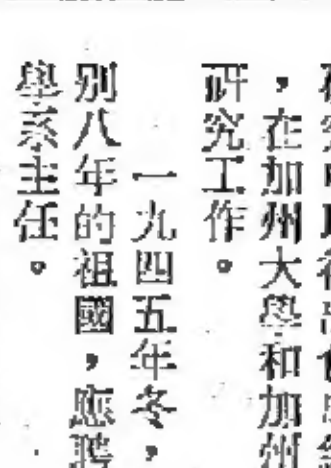 ，在加州大學和加州
研究工作。
一九四五年冬，
別八年的祖國，應聘
學系主任。